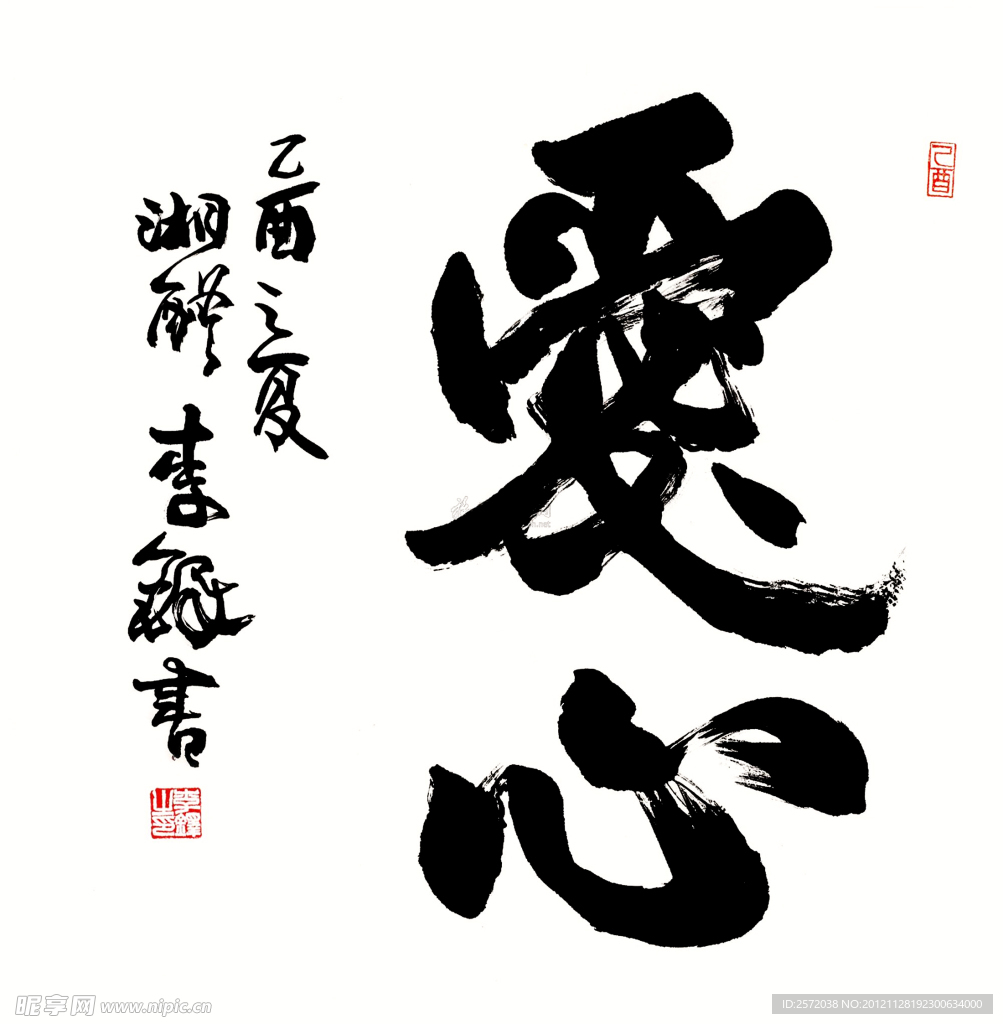 愛心
乙酉
乙酉之夏
湘醴李鐸書
李鐸
昵享网 www.nipic.cn
ID:2572038 NO:20121128192300634000